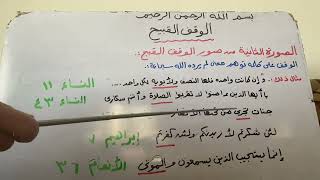 بسم الله الرحمن الرحيم
الوقف القبيح
الصورة الثانية من صور الوقف القبيح:
الوقف على كلام يوهم معنى لم يرده الله سبحانه
مثال ذلك: وإن كانت واحدة فلها النصف ولأبويه لكل واحد.... النساء ١١
يا أيها الذين ءامنوا لا تقربوا الصلاة وأنتم سكارى النساء ٤٣
جنات تجري من تحتها الأنهار
لئن شكرتم لأزيدنكم ولئن كفرتم إبراهيم ٧
إنما يستجيب الذين يسمعون والموتى الأنعام ٣٦